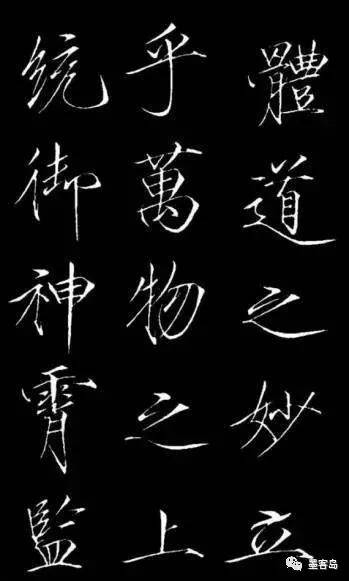 體道之妙立
乎萬物之上
統御神霄監
墨客岛